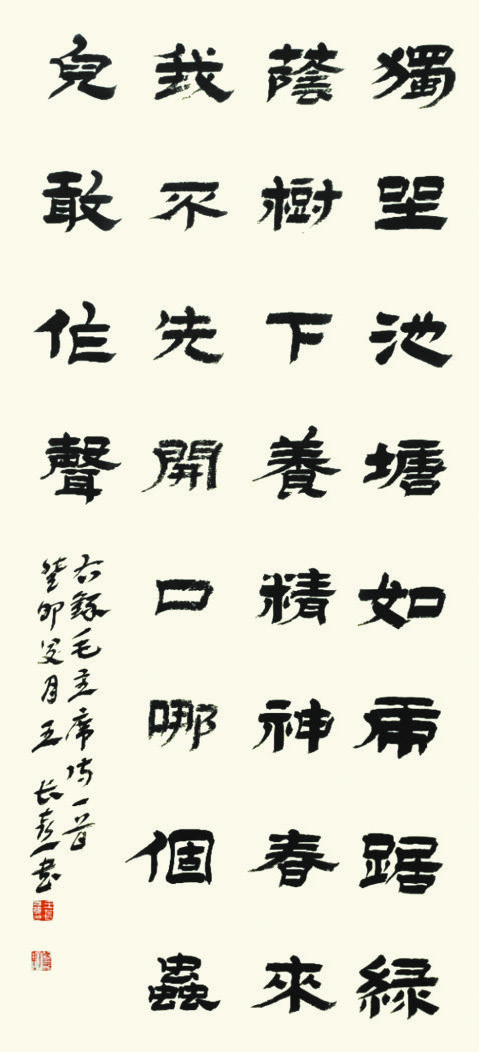 獨坐池塘如虎踞綠
蔭樹下養精神春來
我不先開口哪個蟲
兒敢作聲
右錄毛主席詩一首
癸卯夏月王長春書